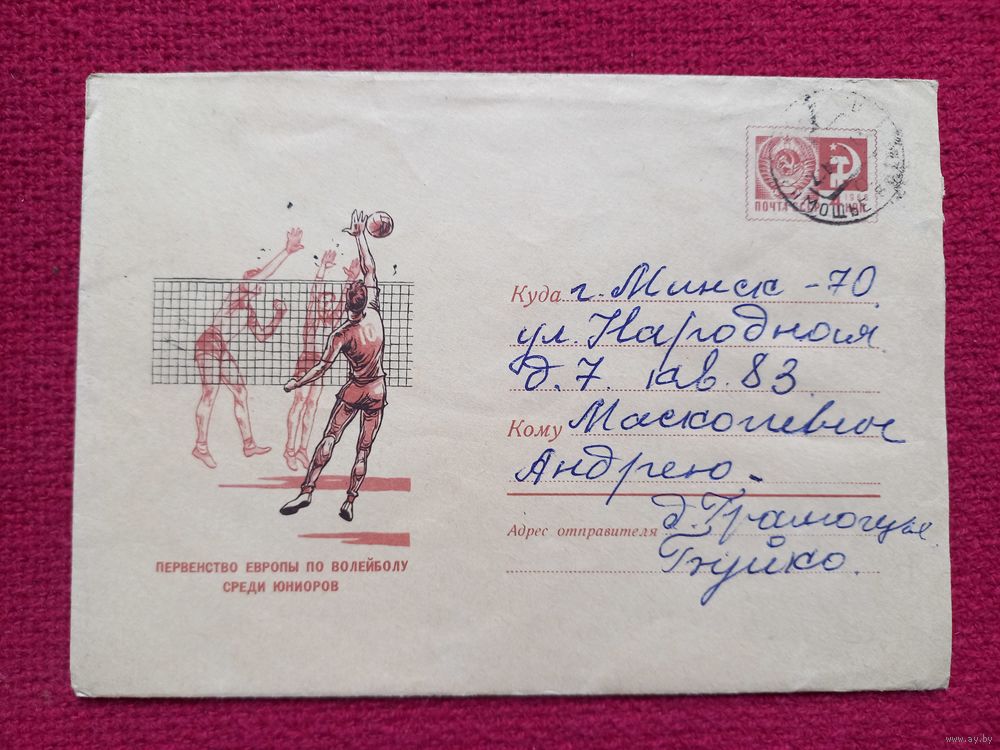 ПОЧТА СССР
1966
ПЕРВЕНСТВО ЕВРОПЫ ПО ВОЛЕЙБОЛУ
СРЕДИ ЮНИОРОВ
10
Куда г. Минск - 70
ул. Народная
д. 7. кв. 83
Кому
Андрею
Адрес отправителя д.
www.ay.by